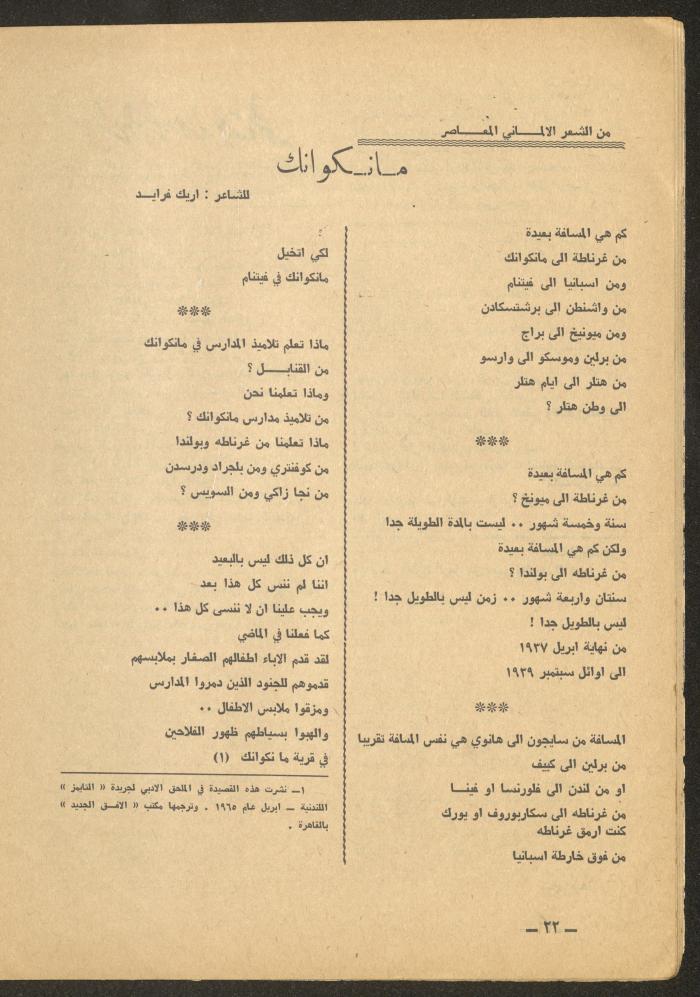 من الشعر الالماني المعاصر
مانكوانك
للشاعر : اريك فرايد
كم هي المسافة بعيدة
من غرناطة الى مانكوانك
ومن اسبانيا الى فيتنام
من واشنطن الى برشتسكادن
ومن ميونيخ الى براج
من برلين وموسكو الى وارسو
من هتلر الى ايام هتلر
الى وطن هتلر ؟
***
كم هي المسافة بعيدة
من غرناطة الى ميونخ ؟
سنة وخمسة شهور .. ليست بالمدة الطويلة جدا
ولكن كم هي المسافة بعيدة
من غرناطه الى بولندا ؟
سنتان واربعة شهور .. زمن ليس بالطويل جدا !
ليس بالطويل جدا !
من نهاية ابريل ١٩٣٧
الى اوائل سبتمبر ١٩٣٩
***
المسافة من سايجون الى هانوي هي نفس المسافة تقريبا
من برلين الى كييف
او من لندن الى فلورنسا او فينا
من غرناطه الى سكاربوروف او يورك
كنت ارمق غرناطه
من فوق خارطة اسبانيا
لكي اتخيل
مانكوانك في فيتنام
***
ماذا تعلم تلاميذ المدارس في مانكوانك
من القنابل ؟
وماذا تعلمنا نحن
من تلاميذ مدارس مانكوانك ؟
ماذا تعلمنا من غرناطه وبولندا
من كوفنتري ومن بلجراد ودرسدن
من نجا زاكي ومن السويس ؟
***
ان كل ذلك ليس بالبعيد
اننا لم ننس كل هذا بعد
ويجب علينا ان لا ننسى كل هذا ..
كما فعلنا في الماضي
لقد قدم الاباء اطفالهم الصغار بملابسهم
قدموهم للجنود الذين دمروا المدارس
ومزقوا ملابس الاطفال ..
والهبوا بسياطهم ظهور الفلاحين
في قرية ما نكوانك (١)
١ــ نشرت هذه القصيدة في الملحق الادبي لجريدة « التايمز »
اللندنية ــ ابريل عام ١٩٦٥ . وترجمها مكتب « الافق الجديد »
بالقاهرة .
ــ ٢٢ ــ